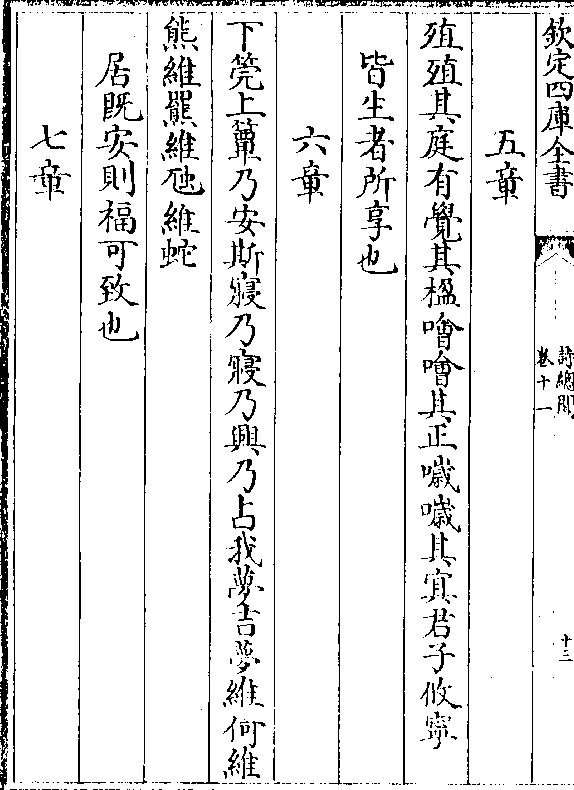 欽定四庫全書
詩總聞
卷十一
十三
五章
殖殖其庭有覺其楹噲噲其正噦噦其冥君子攸寧
皆生者所享也
六章
下莞上簟乃安斯寢乃寢乃興乃占我夢吉夢維何維
熊維羆維虺維蛇
居既安則福可致也
七章